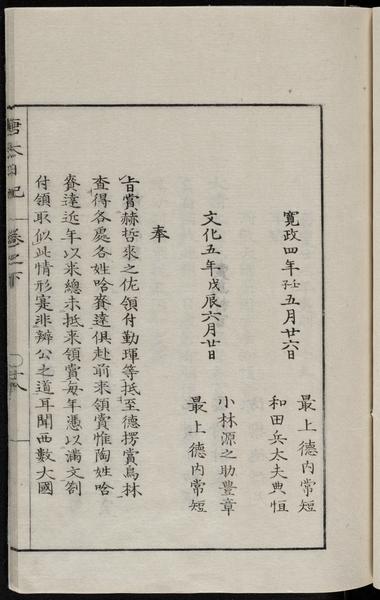 寛政四年壬子五月廿六日
最上德内常短
和田兵太夫典恒
文化五年戊辰六月廿日
小林源之助豊章
最上德内常短
奉
上旨賞赫哲來之佐領付勤琿等抵至德楞賞烏林
查得各處各姓哈賚達俱赴前來領賞惟陶姓哈
賚達近年以來總未抵來領賞每年憑以滿文劄
付領取似此情形寔非辦公之道耳聞西數大國
卷之下